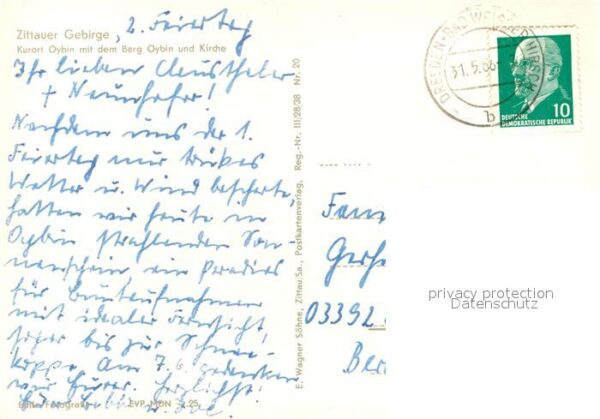 Zittauer Gebirge
Kurort Oybin mit dem Berg Oybin und Kirche
2. Feiertag
Ihr lieben Clausthaler
+ Neunhofer!
Nachdem uns der 1.
Feiertag nur trübes
Wetter u. Wind bescherte,
hatten wir heute in
Oybin strahlenden Son-
nenschein ein Paradies
für Buntaufnahmen
mit idealer Fernsicht,
sogar bis zur Schnee-
koppe. Am 7.6. gedenken
wir Eurer. Herzlichst!
Echte Fotografie EVP MDN -,25
E. Wagner Söhne, Zittau/Sa., Postkartenverlag, Reg.-Nr. III/28/38 Nr. 20
DRESDEN-BAD WEISSER HIRSCH
31.5.66
b
10
DEUTSCHE
DEMOKRATISCHE REPUBLIK
Fam
Gerh
03392
Ber
privacy protection
Datenschutz